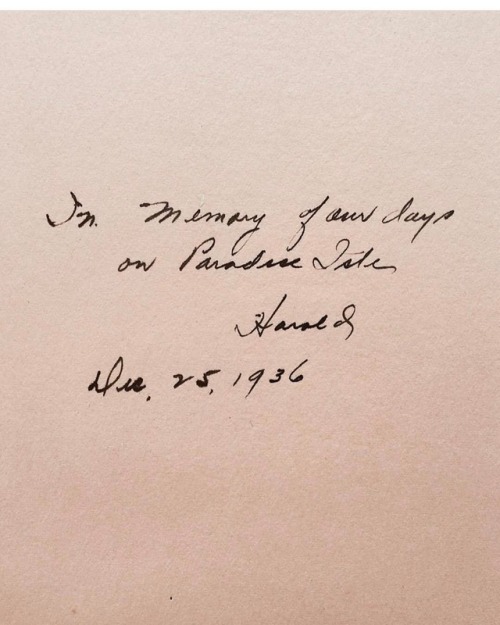 In Memory of our days
on Paradise Isle
Harold
Dec. 25, 1936